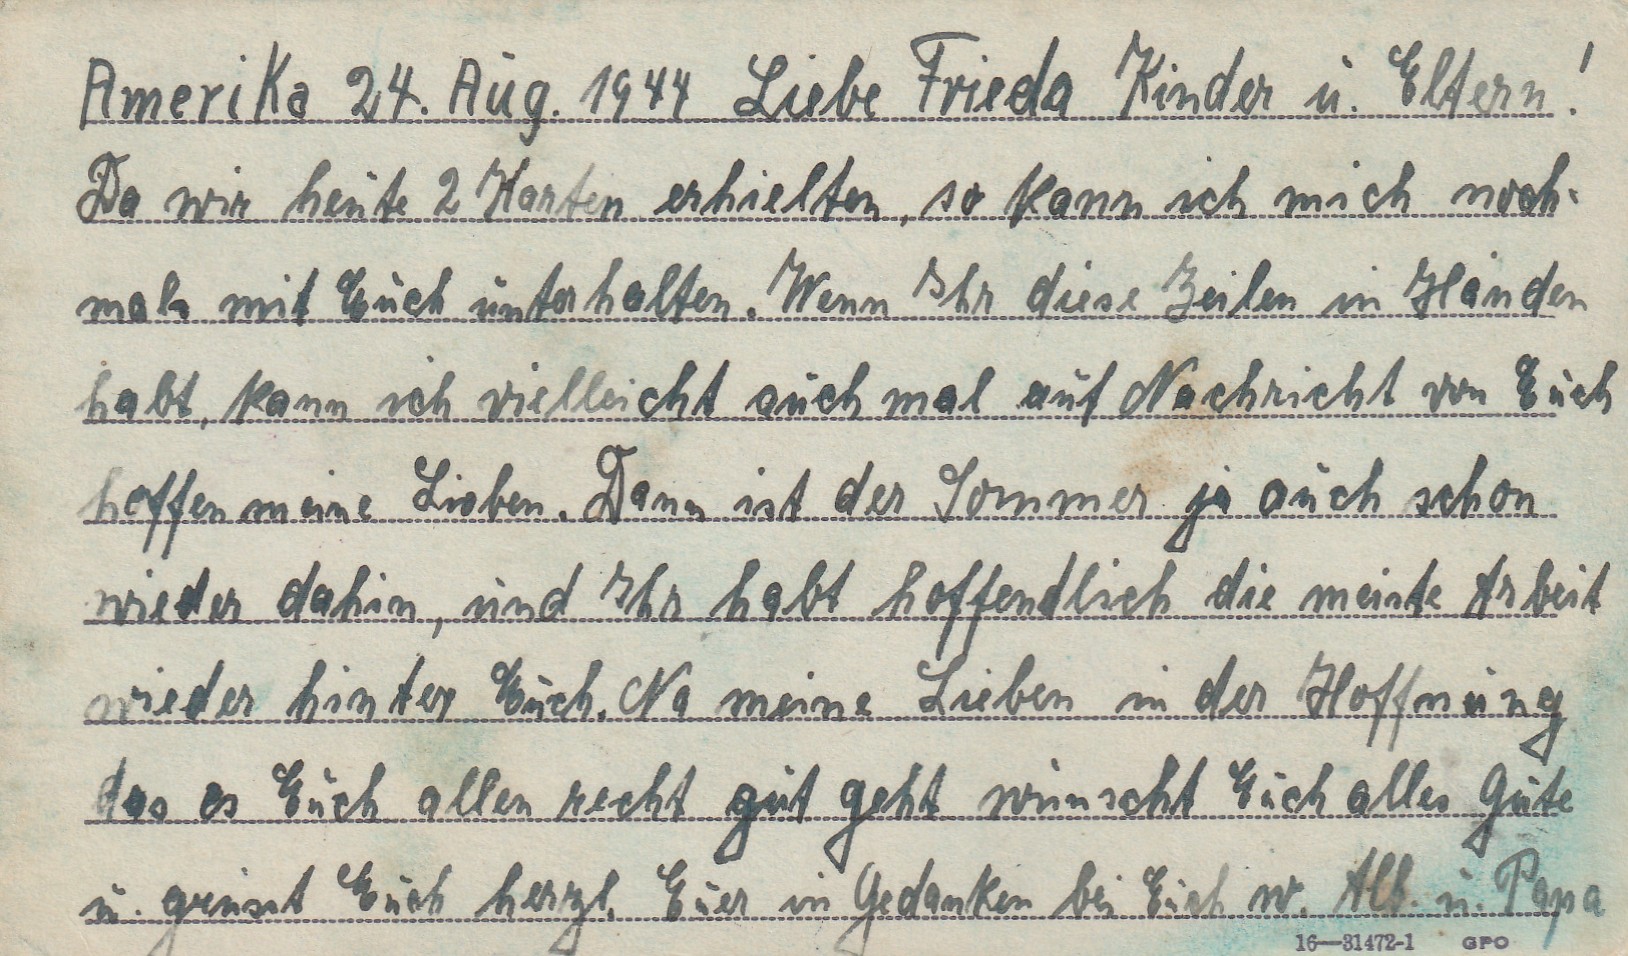 Amerika 24. Aug. 1944 Liebe Frieda Kinder u. Eltern!
Da wir heute 2 Karten erhielten, so kann ich mich noch-
mals mit Euch unterhalten. Wenn Ihr diese Zeilen in Händen
habt, kann ich vielleicht auch mal auf Nachricht von Euch
hoffen meine Lieben. Dann ist der Sommer ja auch schon
wieder dahin, und Ihr habt hoffendlich die meiste Arbeit
wieder hinter Euch. Na meine Lieben in der Hoffnung
das es Euch allen recht gut geht wünscht Euch alles Gute
u. grüsst Euch herzl. Euer in Gedanken bei Euch w. Alb. u. Papa
16—31472-1 GPO